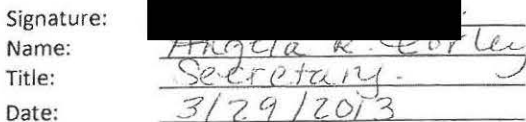 Signature:
Name: Angela R. Corley
Title: Secretary.
Date: 3/29/2013